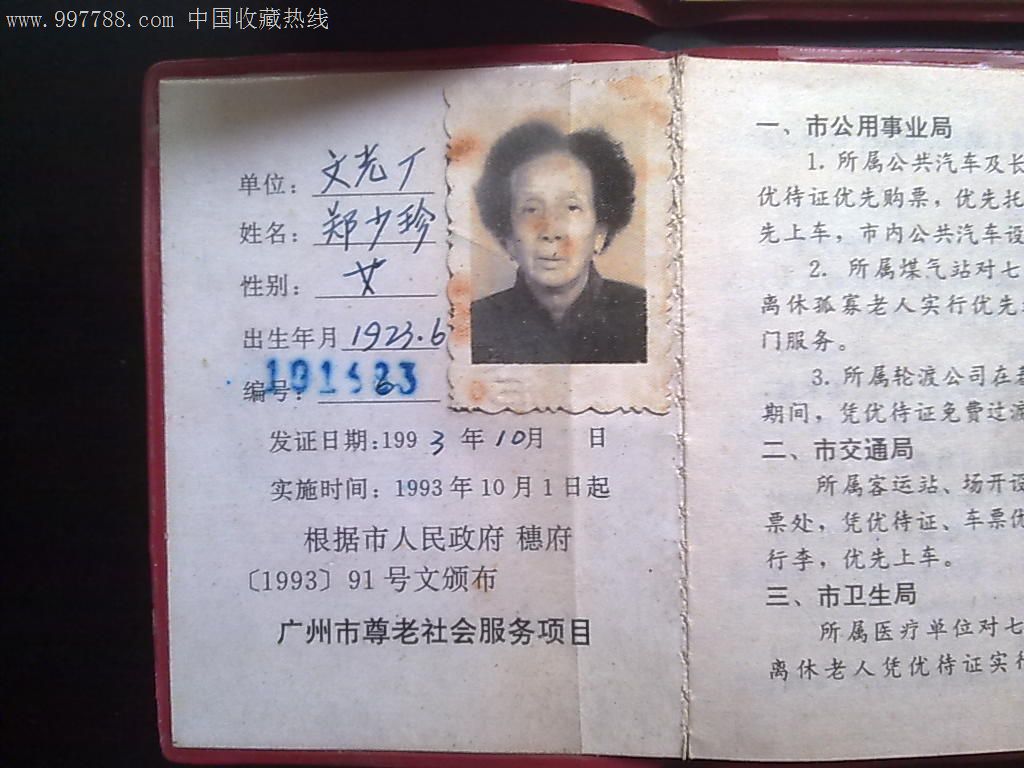 www.997788.com 中国收藏热线
单位：文老丁
姓名：郑少珍
性别：女
出生年月 1923.6
编号：
发证日期：1993年10月 日
实施时间：1993年10月1日起
根据市人民政府 穗府
〔1993〕91号文颁布
广州市尊老社会服务项目
一、市公用事业局
1. 所属公共汽车及长
优待证优先购票，优先托
先上车，市内公共汽车设
2. 所属煤气站对七
离休孤寡老人实行优先
门服务。
3. 所属轮渡公司在
期间，凭优待证免费过渡
二、市交通局
所属客运站、场开设
票处，凭优待证、车票优
行李，优先上车。
三、市卫生局
所属医疗单位对七
离休老人凭优待证实行